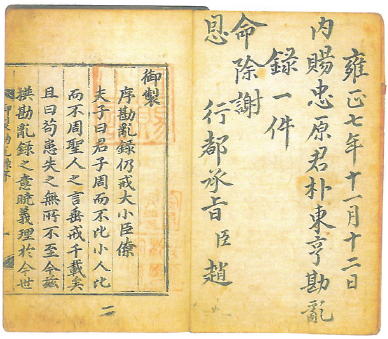 雍正七年十一月十二日
內賜忠原君朴東亨勘亂
錄一件
命除謝
恩 行都承旨臣趙
御製
序勘亂錄仍戒大小臣僚
夫子曰君子周而不比小人比
而不周聖人之言垂戒千載矣
且曰苟患失之無所不至今玆
撰勘亂錄之意曉義理於今世